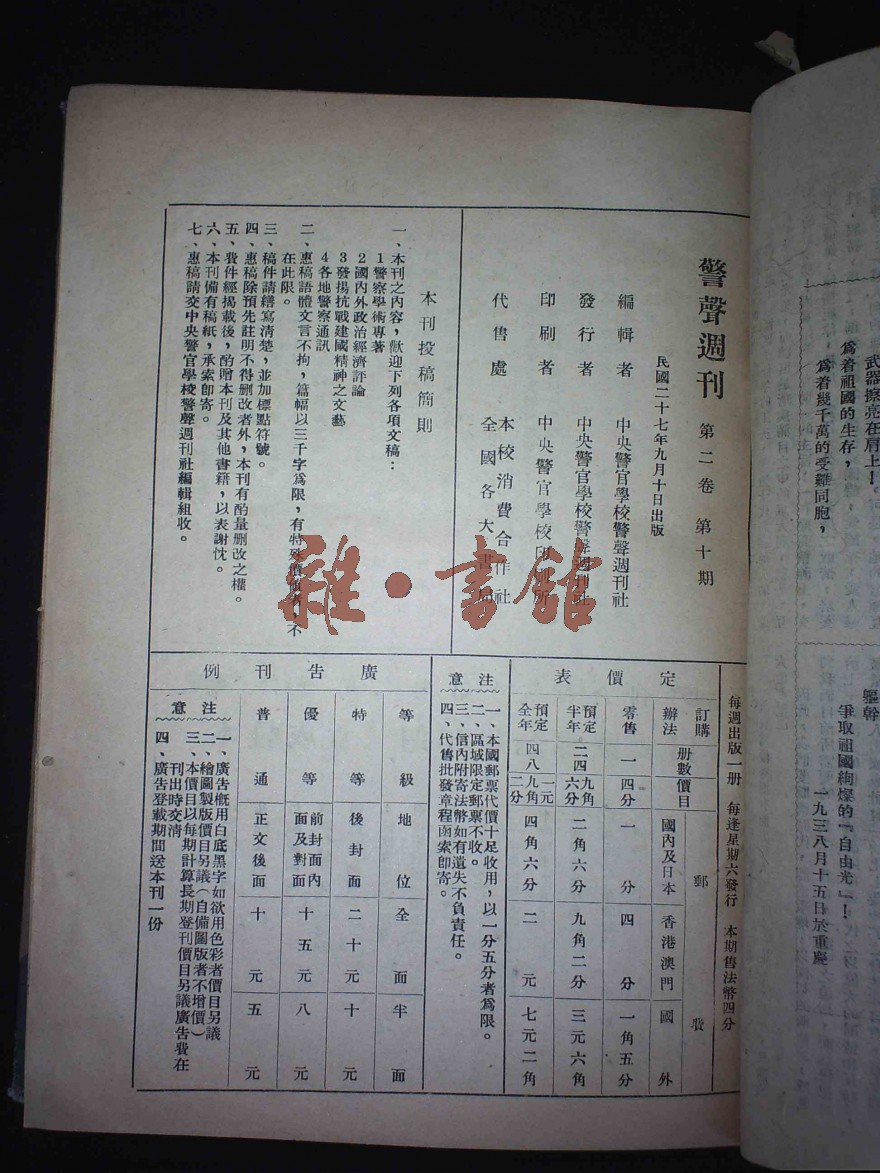 武器擦亮在肩上！
爲着祖國的生存，
爲着幾千萬的受難同胞，
軀幹
爭取祖國絢燦的『自由光』！
一九三八月十五日於重慶
警聲週刊 第二卷 第十期
民國二十七年九月十日出版
編輯者 中央警官學校警聲週刊社
發行者 中央警官學校警聲週刊社
印刷者 中央警官學校印刷所
代售處 本校消費合作社
全國各大書局
本刊投稿簡則
一、本刊之內容，歡迎下列各項文稿：
1警察學術專著
2國內外政治經濟評論
3發揚抗戰建國精神之文藝
4各地警察通訊
二、惠稿語體文言不拘，篇幅以三千字爲限，有特殊價值者，不
在此限。
三、稿件請繕寫清楚，並加標點符號。
四、惠稿除預先註明不得刪改者外，本刊有酌量刪改之權。
五、費件經揭載後，酌贈本刊及其他書籍，以表謝忱。
六、本刊備有稿紙，承索卽寄。
七、惠稿請交中央警官學校警聲週刊社編輯組收。
雜·書館
每週出版一册 每逢星期六發行 本期售法幣四分
定價表
訂購辦法 册數 價目 郵費
國內及日本 香港澳門 國外
零售 一 四分 一分 四分 一角五分
預定半年 二四 九角六分 二角六分 九角二分 三元六角
預定全年 四八 一元九角二分 四角六分 二元 七元二角
注意
一、本國郵票代價十足收用，以一分五分者爲限。
二、區域限定郵票不收。
三、信內附寄法幣如有遺失不負責任。
四、代售批發章程函索卽寄。
廣告刊例
等級 地位 全面 半面
特等 後封面 二十元 十元
優等 前封面內面及對面 十五元 八元
普通 正文後面 十元 五元
注意
一、廣告概用白底黑字如欲用色彩者價目另議
二、繪圖製版價目另議（自備圖版者不增價）
三、本價目以每期計算長期登刊價目另議廣告費在
刊出時交清
四、廣告登載期間送本刊一份